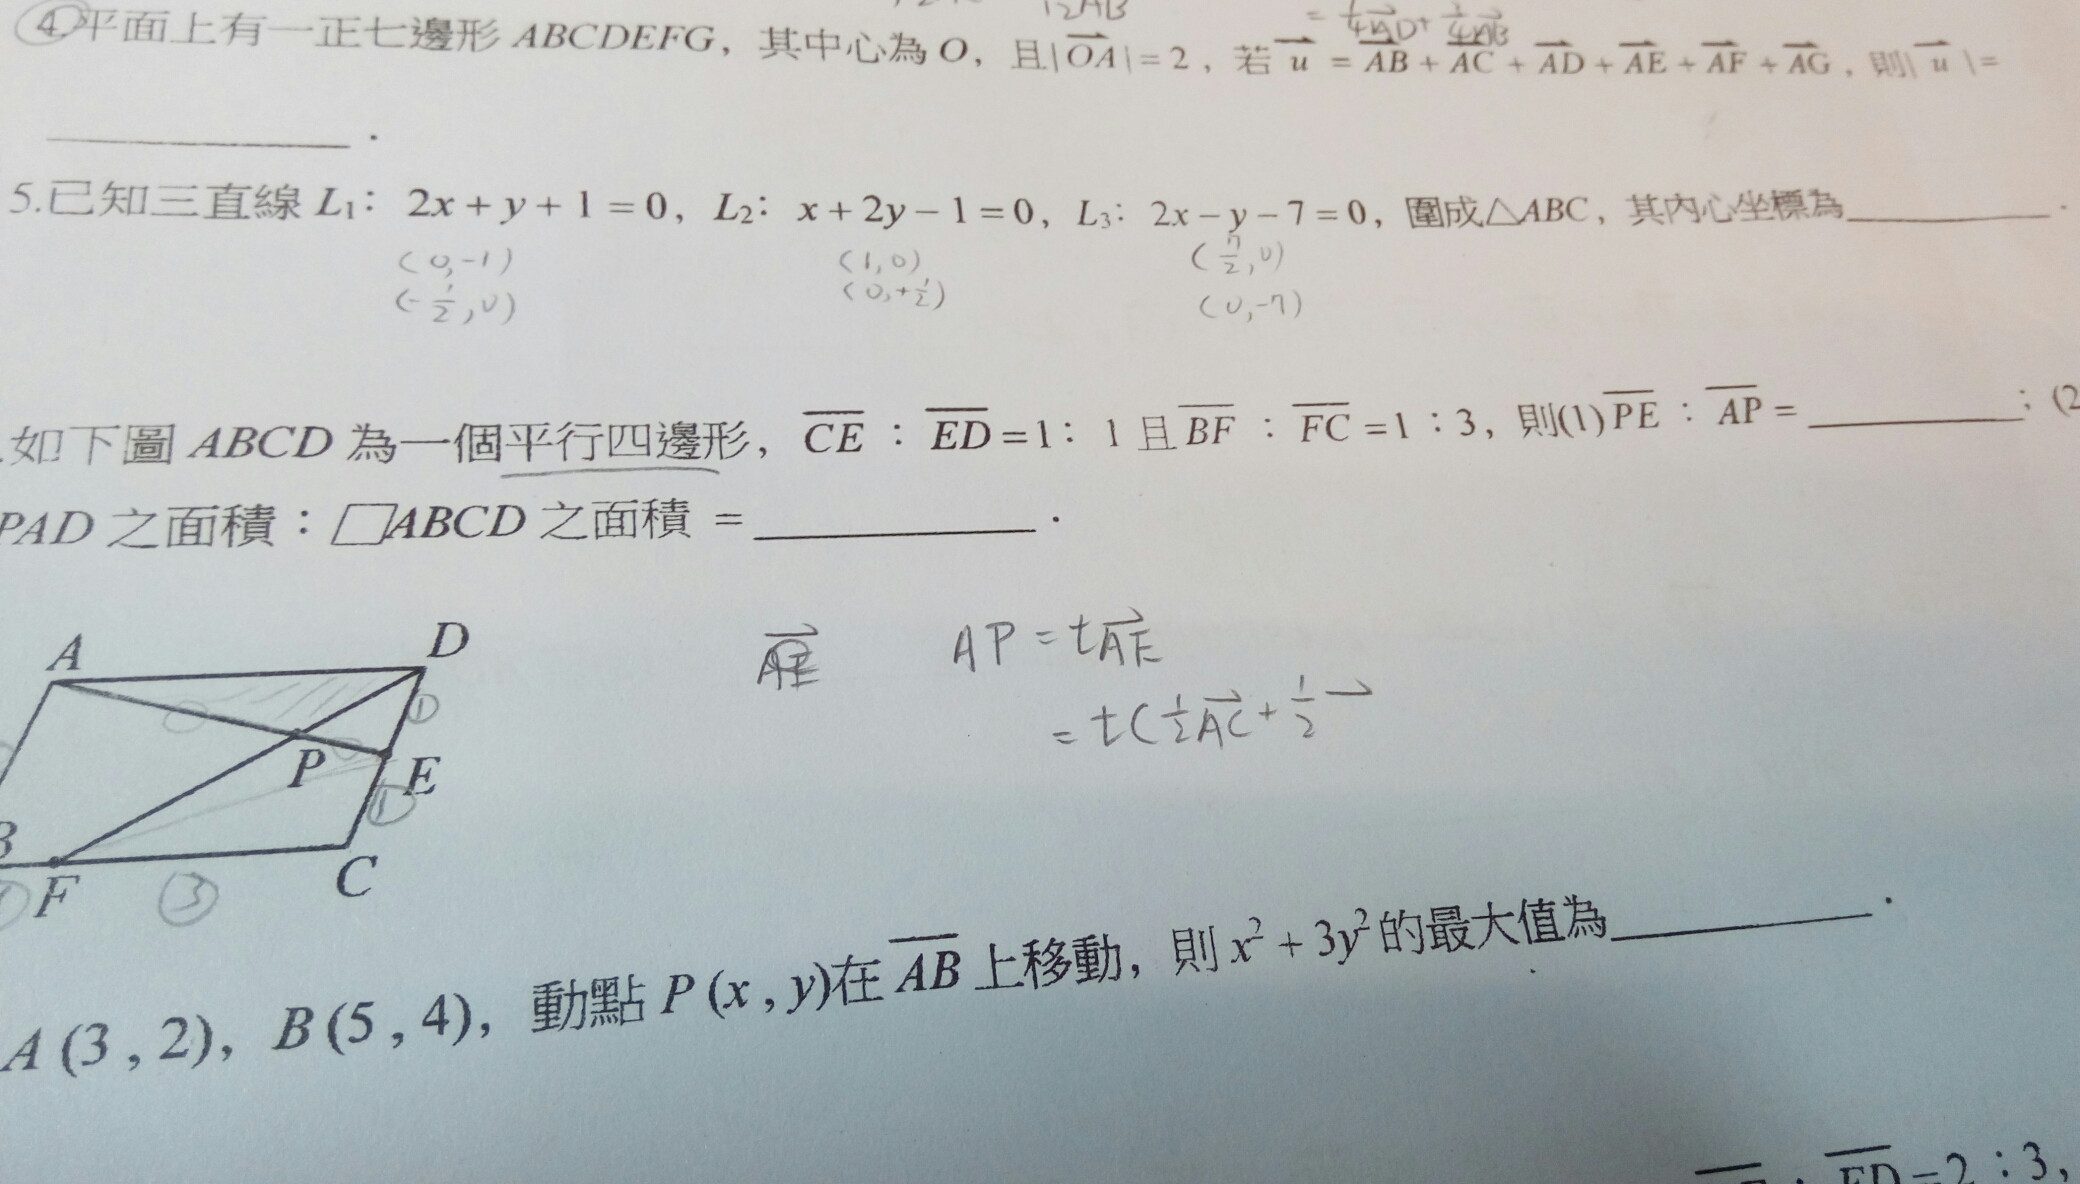 12AB
= 1/4AD + 3/4AB
4.平面上有一正七邊形 ABCDEFG，其中心為 O，且|OA|=2，若 u = AB + AC + AD + AE + AF + AG，則| u |=
．
5.已知三直線 L1：2x + y + 1 = 0，L2：x + 2y − 1 = 0，L3：2x − y − 7 = 0，圍成△ABC，其內心坐標為 ．
(0,-1) (1,0) (7/2,0)
(-1/2,0) (0,+1/2) (0,-7)
.如下圖 ABCD 為一個平行四邊形，CE：ED=1：1 且 BF：FC=1：3，則(1)PE：AP= ；(2
PAD 之面積：□ABCD 之面積 = ．
A D
AE AP = tAE
1
= t(1/2AC + 1/2
P E
1
B F 3 C
A (3 , 2)，B (5 , 4)，動點 P (x , y)在 AB 上移動，則 x² + 3y² 的最大值為 ．
：ED=2：3，